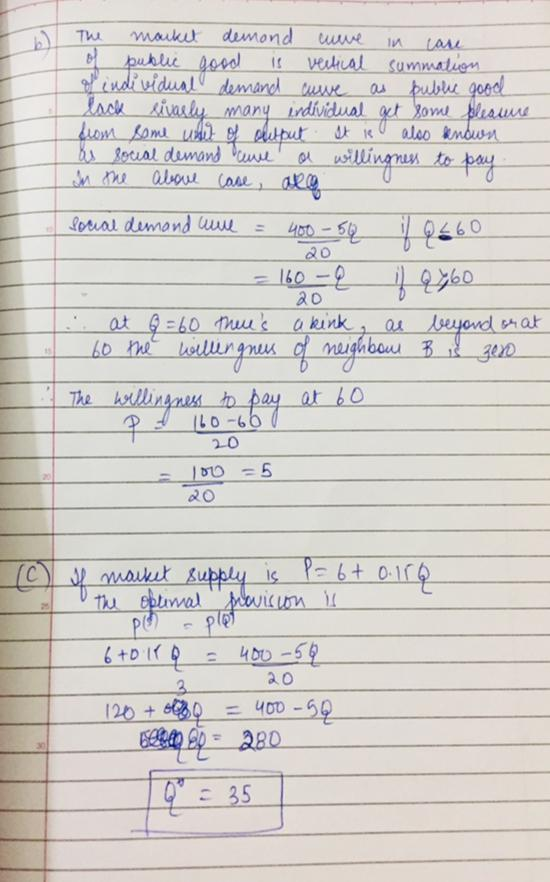 b) The market demand curve in case
of public good is vertical summation
of individual demand curve as public good
lack rivarly many individual get same pleasure
from same unit of output. It is also known
as social demand curve or willingness to pay.
In the above case,
Social demand curve = 400 - 5Q / 20 if Q ≤ 60
= 160 - Q / 20 if Q ≥ 60
∴ at Q = 60 there's a kink, as beyond or at
60 the willingness of neighbour B is zero
∴ The willingness to pay at 60
P = 160 - 60 / 20
= 100 / 20 = 5
(C) If market supply is P = 6 + 0.15Q
The optimal provision is
= P(Q)
6 + 0.15 Q = 400 - 5Q / 20
120 + 3Q = 400 - 5Q
8Q = 280
Q* = 35